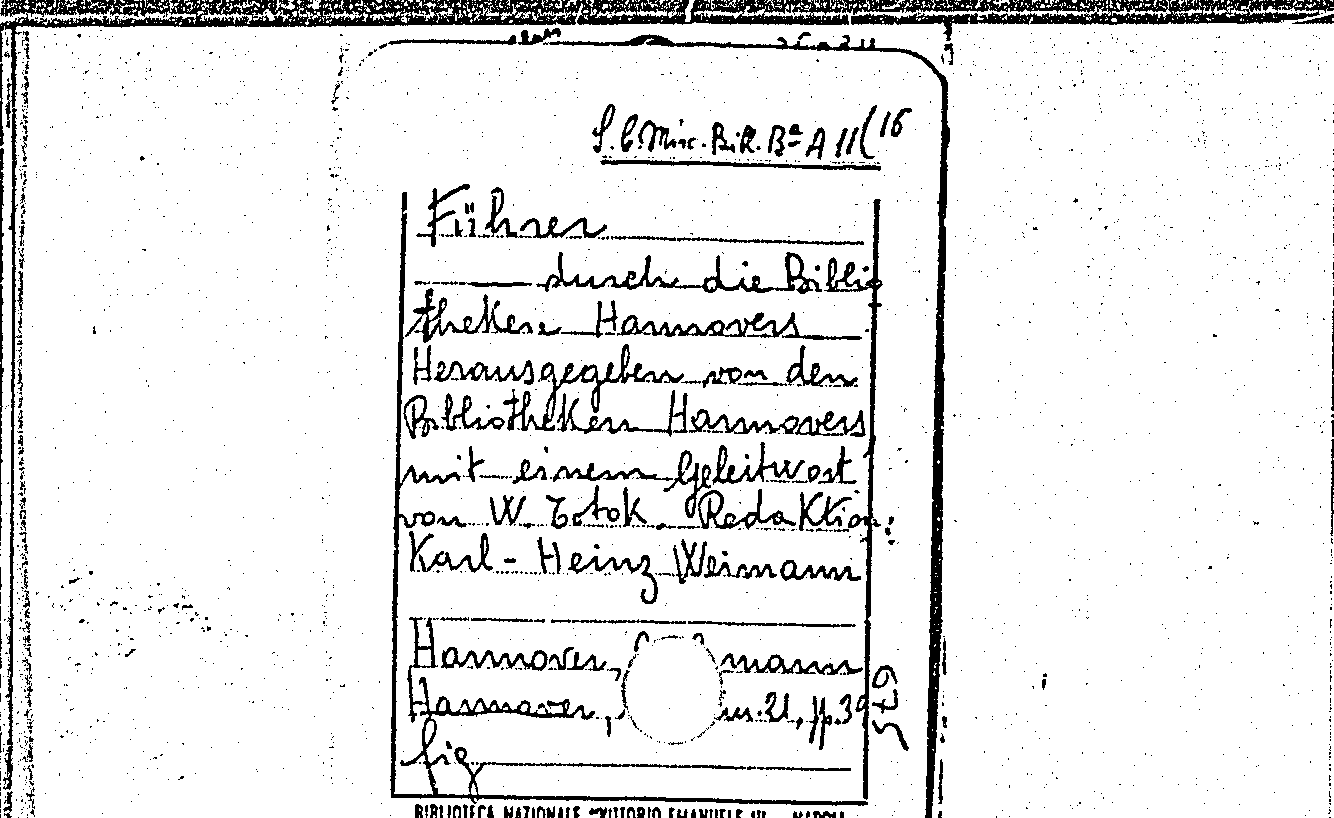 S.C. Misc. Bi.R. Bª A 11(16
Führer
durch die Biblio
theken Hannovers
Herausgegeben von den
Bibliotheken Hannovers
mit einem Geleitwort
von W. Totok. Redaktion:
Karl-Heinz Weimann
Hannover, mann
Hannover, 21, pp.39
fig
675
BIBLIOTECA NAZIONALE "VITTORIO EMANUELE III" NAPOLI